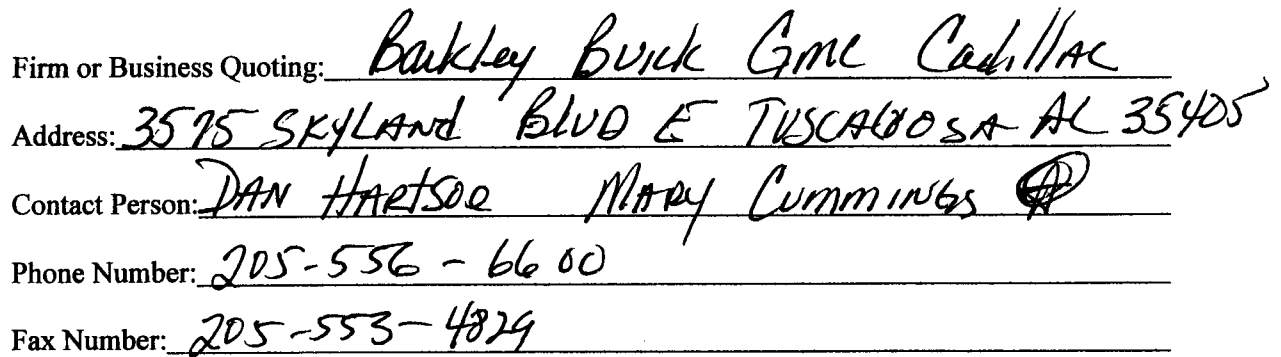 Firm or Business Quoting: Barkley Buick GMC Cadillac
Address: 3575 SKYLAND BLVD E TUSCALOOSA AL 35405
Contact Person: DAN HARTSOE MARY CUMMINGS
Phone Number: 205-556-6600
Fax Number: 205-553-4829